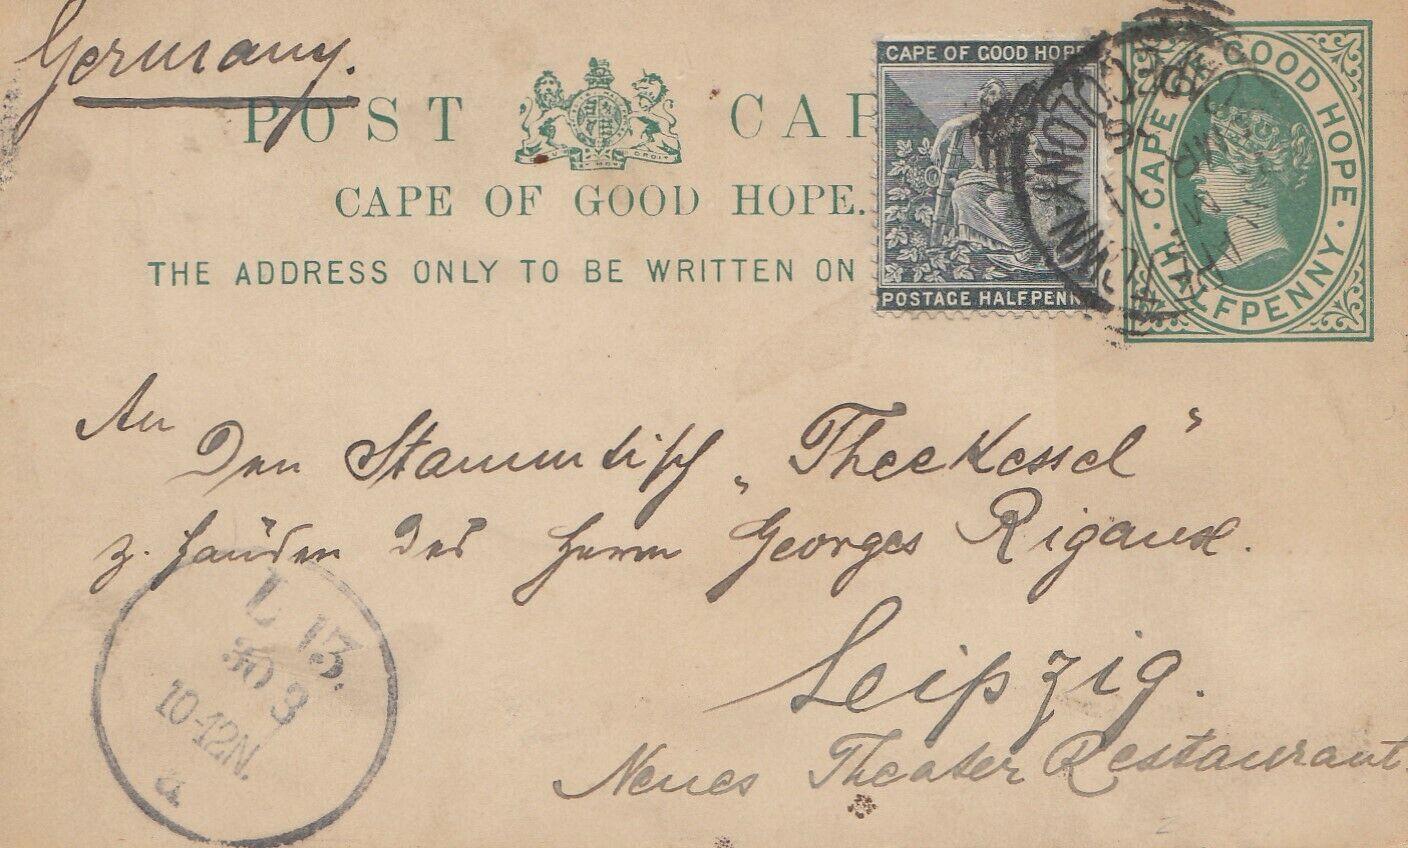 Germany.
POST CAR
CAPE OF GOOD HOPE.
THE ADDRESS ONLY TO BE WRITTEN ON
CAPE OF GOOD HOPE
POSTAGE HALFPENN
CAPE GOOD HOPE
HALFPENNY
TOWN COLONY
MR
An
Den Stammtisch „Theekessel“
z. Händen des Herrn Georges Rigaux.
Leipzig.
Neues Theater Restaurant.
L 13.
30 3
10-12N.
a